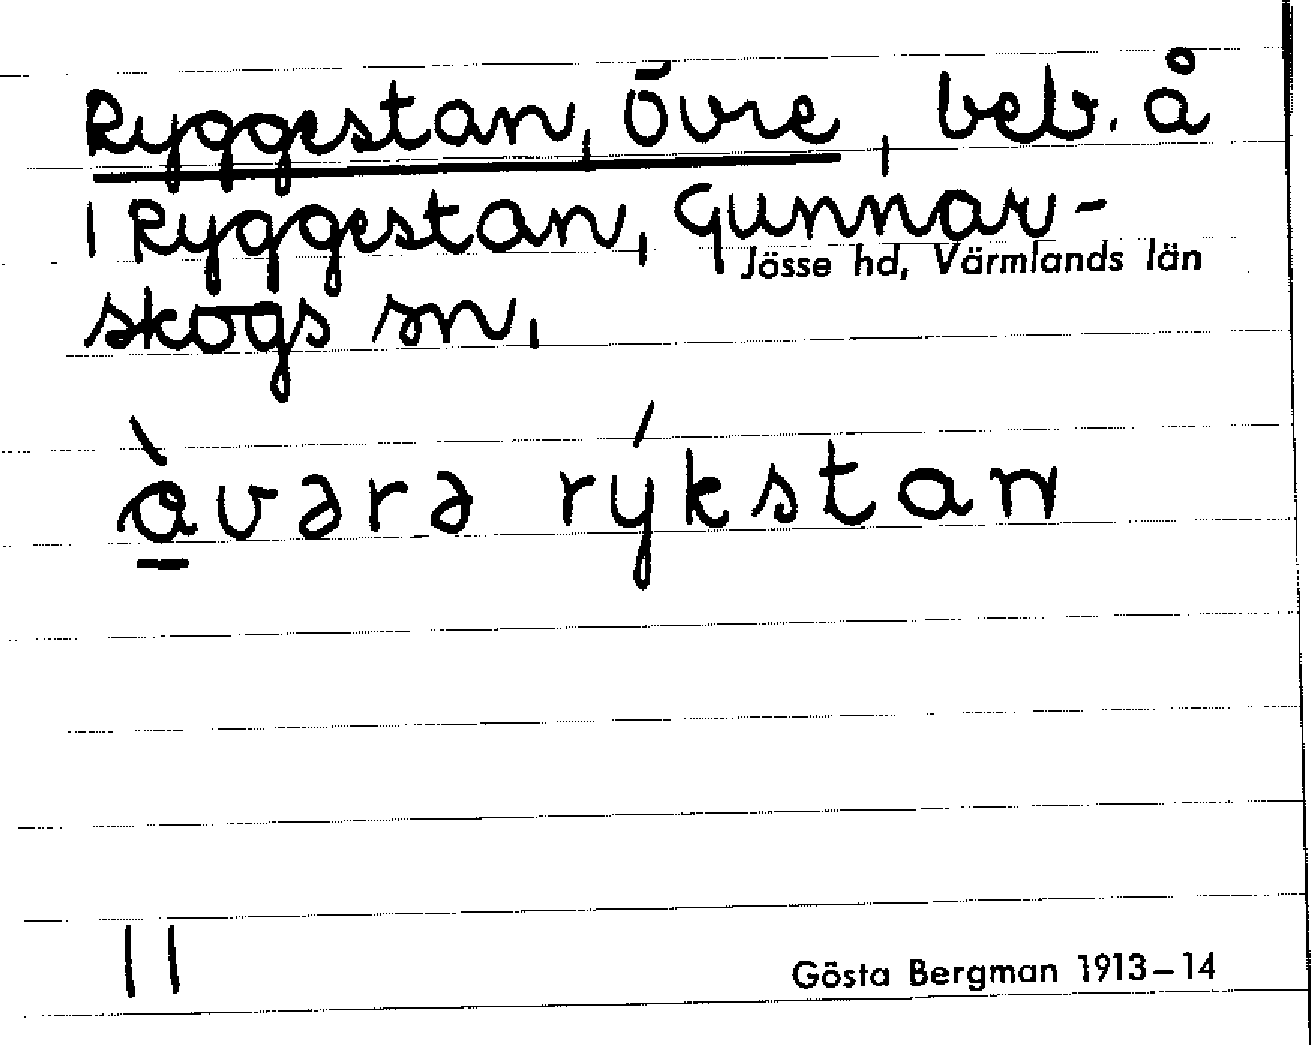 Ryggestan, Övre, beb. å
1 Ryggestan, Gunnar-
Jösse hd, Värmlands län
skogs sn.
àvərə rýkstan
11
Gösta Bergman 1913–14